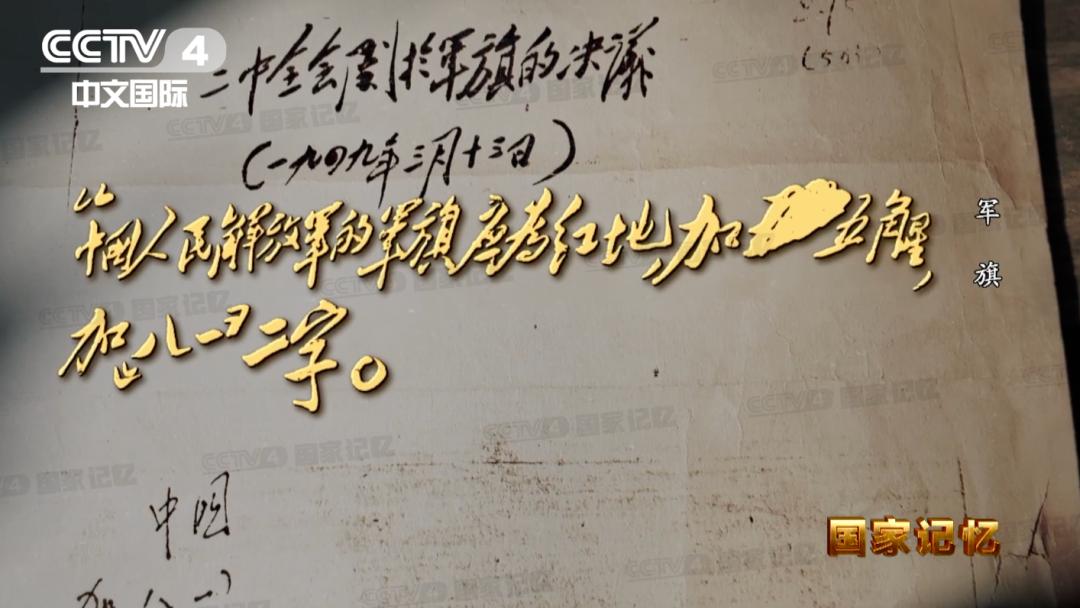 CCTV 4
中文国际
二中全会关于军旗的决议
(一九四九年三月十三日)
中國人民解放军的军旗应为红地,加五角星,
加“八一”二字。
军旗
中国
加八一
国家记忆